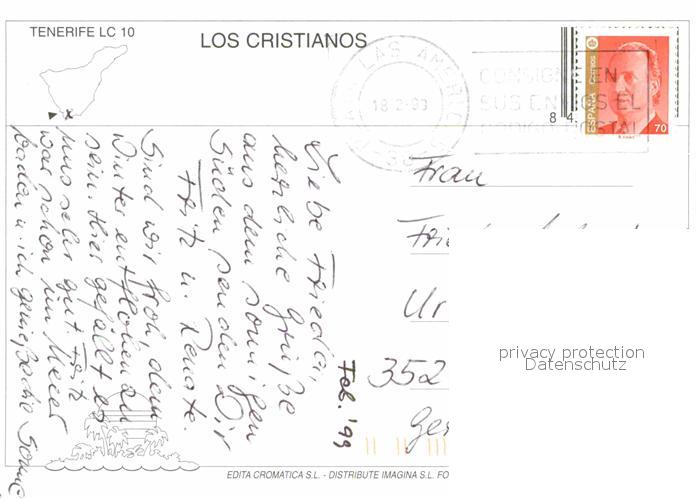 TENERIFE LC 10
LOS CRISTIANOS
LAS AMERIC
18-2-99
CONSIGNE EN
SUS ENVIOS EL
CODIGO POSTAL
ESPAÑA Correos
70
84
Liebe Frieda,
herzliche Grüße
aus dem sonnigen
Süden senden Dir
Fritz u. Renate.
Sind wir froh, dem
Winter entflohen zu
sein. Hier gefällt es
uns sehr gut. Fritz
war schon im Meer
baden u. ich genieße die Sonne
Feb. '99
Frau
Frie
Ur
352
Ger
privacy protection
Datenschutz
EDITA CROMATICA S.L. - DISTRIBUTE IMAGINA S.L. FO